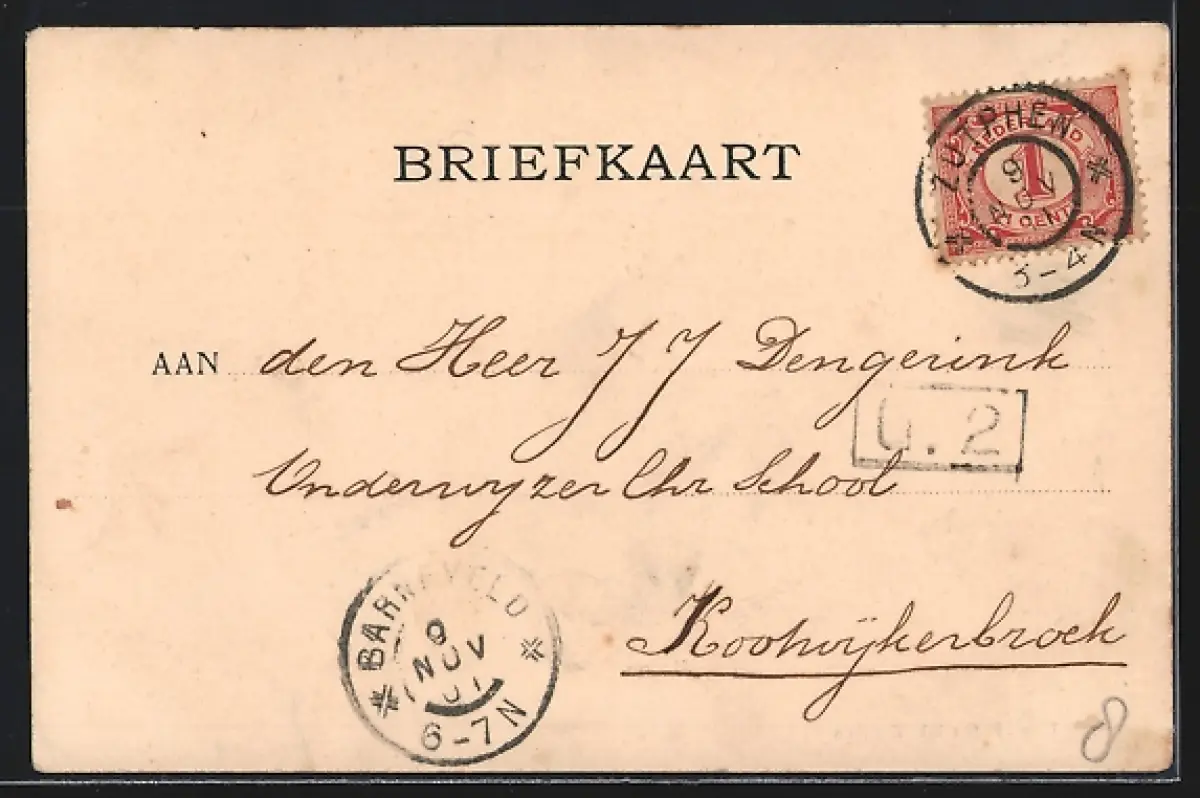 BRIEFKAART
ZUTPHEN
9 NOV
3-4 N
NEDERLAND
1
CENT
AAN den Heer J J Dengerink
G.2
Onderwyzer Chr School
Kootwijkerbroek
BARNEVELD
9
NOV
01
6-7N
8